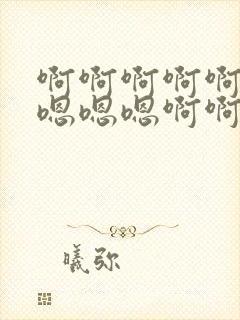 啊啊啊啊啊
嗯嗯嗯啊啊
曦弥